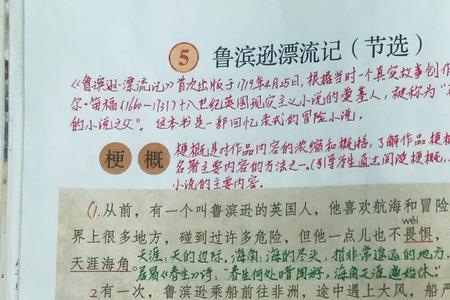 5 鲁滨逊漂流记（节选）
《鲁滨逊·漂流记》首次出版于1719年4月25日，根据当时一个真实故事创作
尔·笛福（1660-1731）十八世纪英国现实主义小说的奠基人，被称为“
的小说之父”。这本书是一部回忆录式的冒险小说。
梗概 梗概是对作品内容的浓缩和概括，了解作品梗概
名著主要内容的方法之一。（引导学生通过阅读梗概，
小说的主要内容．
(1.从前，有一个叫鲁滨逊的英国人，他喜欢航海和冒险
wèi
界上很多地方，碰到过许多危险，但他一点儿也不畏惧，
天涯，天的边际，海角：海的尽头，指非常遥远的地方，
天涯海角。
唐 《春生》诗：“春生何处暗周游，海角天涯遍始休。”
2有一次，鲁滨逊乘船前往非洲，途中遇上大风，船